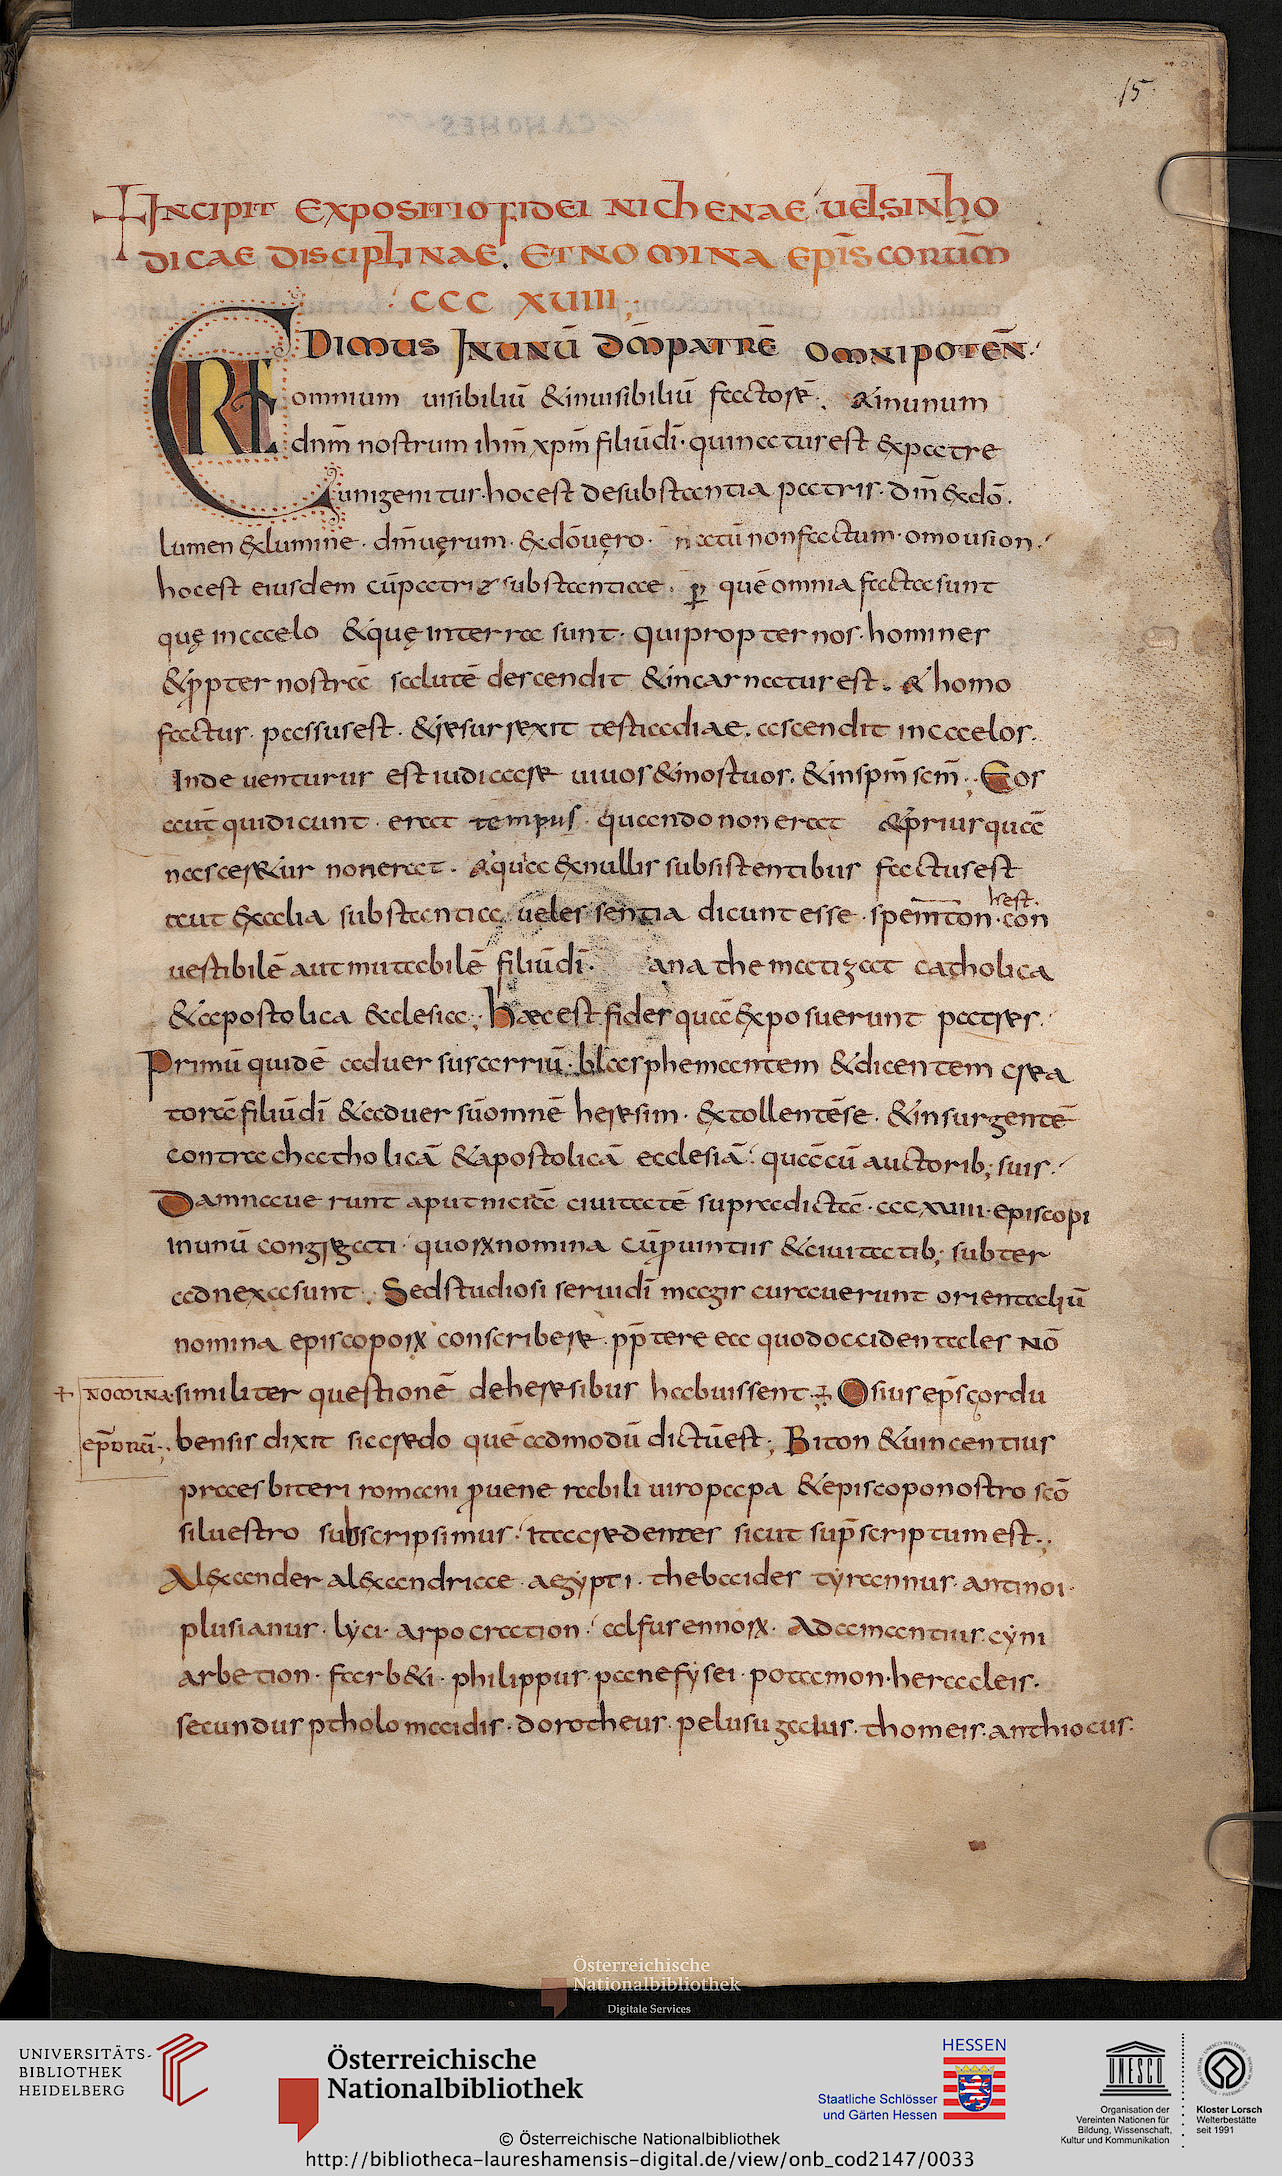 15
INCIPIT EXPOSITIO FIDEI NICHENAE UEL SINHO
DICAE DISCIPLINAE. ET NOMINA EPIS̄CORUM̄
CCC XUIIII;
CREDIMUS IN UNŪ DM̄ PATRĒ OMNIPOTEN̄
omnium uisibiliū & inuisibiliū factorē. & in unum
dnm̄ nostrum ihm̄ xpm̄ filiū dī· qui natus est ex patre
unigenitus· hoc est de substantia patris· dm̄ ex dō.
Lumen ex lumine· dm̄ uęrum· ex dō uęro· natū non factum· omousion.
hoc est eiusdem cū patris substantiae. ꝑ quē omnia facta sunt
quę in caelo & quę in terra sunt· qui propter nos· homines
& ꝓpter nostrā salutē descendit & incarnatus est. & homo
factus. passus est. & resurrexit tertia diae. ascendit in caelos.
Inde uenturus est iudicare uiuos & mostuos. & in spm̄ scm̄. Eos
aut̄ qui dicunt. erat tempus· quando non erat & prius quā
nasceretur non erat. & qua ex nullis subsistentibus factus est
aut ex alia substantia uel essentia dicunt esse· spemton· con
hest.
uestibilē aut mutabilē filiū dī· anathematizat catholica
& apostolica ecclesia; haec est fides quā exposuerunt patres.
Primū quidē aduersus arriū· blasphemantem & dicentem crea
torē filiū dī & aduersū omnē heresim· extollentē se· & insurgentē
contra chatholicā & apostolicā ecclesiā· quē cū auctorib; suis.
Damnauerunt aput niciā ciuitatē supradictā· cccxuiii· episcopi
in unū congregati· quoꝝ nomina cū ꝓuintiis & ciuitatib; subter
adnexa sunt. Sed studiosi serui dī magis curauerunt orientaliū
nomina episcopoꝝ conscribere. ꝓpterea quod occidentales NŌ
+ NOMINA similiter questionē de heresibus habuissent. Osius ep̄s cordu
ep̄orū; bensis dixit sic credo quē admodū dictū est; Biton & uincentius
praesbiteri romani ꝓ uenerabili uiro papa & episcopo nostro scō
siluestro subscripsimus. Ita credentes sicut suprascriptum est.
Alexander alexandriae· aegypti· thebaides tyrannus· antinoi·
plusianus· lyci· arpocration· alfusennoꝝ. Adamantius· cyni
arbetion· farb&i· philippus· panefysei· potamon· heracleis.
secundus ptholomaidis· dorotheus· pelusu gaius· thomeis· anthiocus·
Österreichische
Nationalbibliothek
Digitale Services
UNIVERSITÄTS-
BIBLIOTHEK
HEIDELBERG
Österreichische
Nationalbibliothek
HESSEN
Staatliche Schlösser
und Gärten Hessen
UNESCO
Organisation der
Vereinten Nationen für
Bildung, Wissenschaft,
Kultur und Kommunikation
Kloster Lorsch
Welterbestätte
seit 1991
© Österreichische Nationalbibliothek
http://bibliotheca-laureshamensis-digital.de/view/onb_cod2147/0033